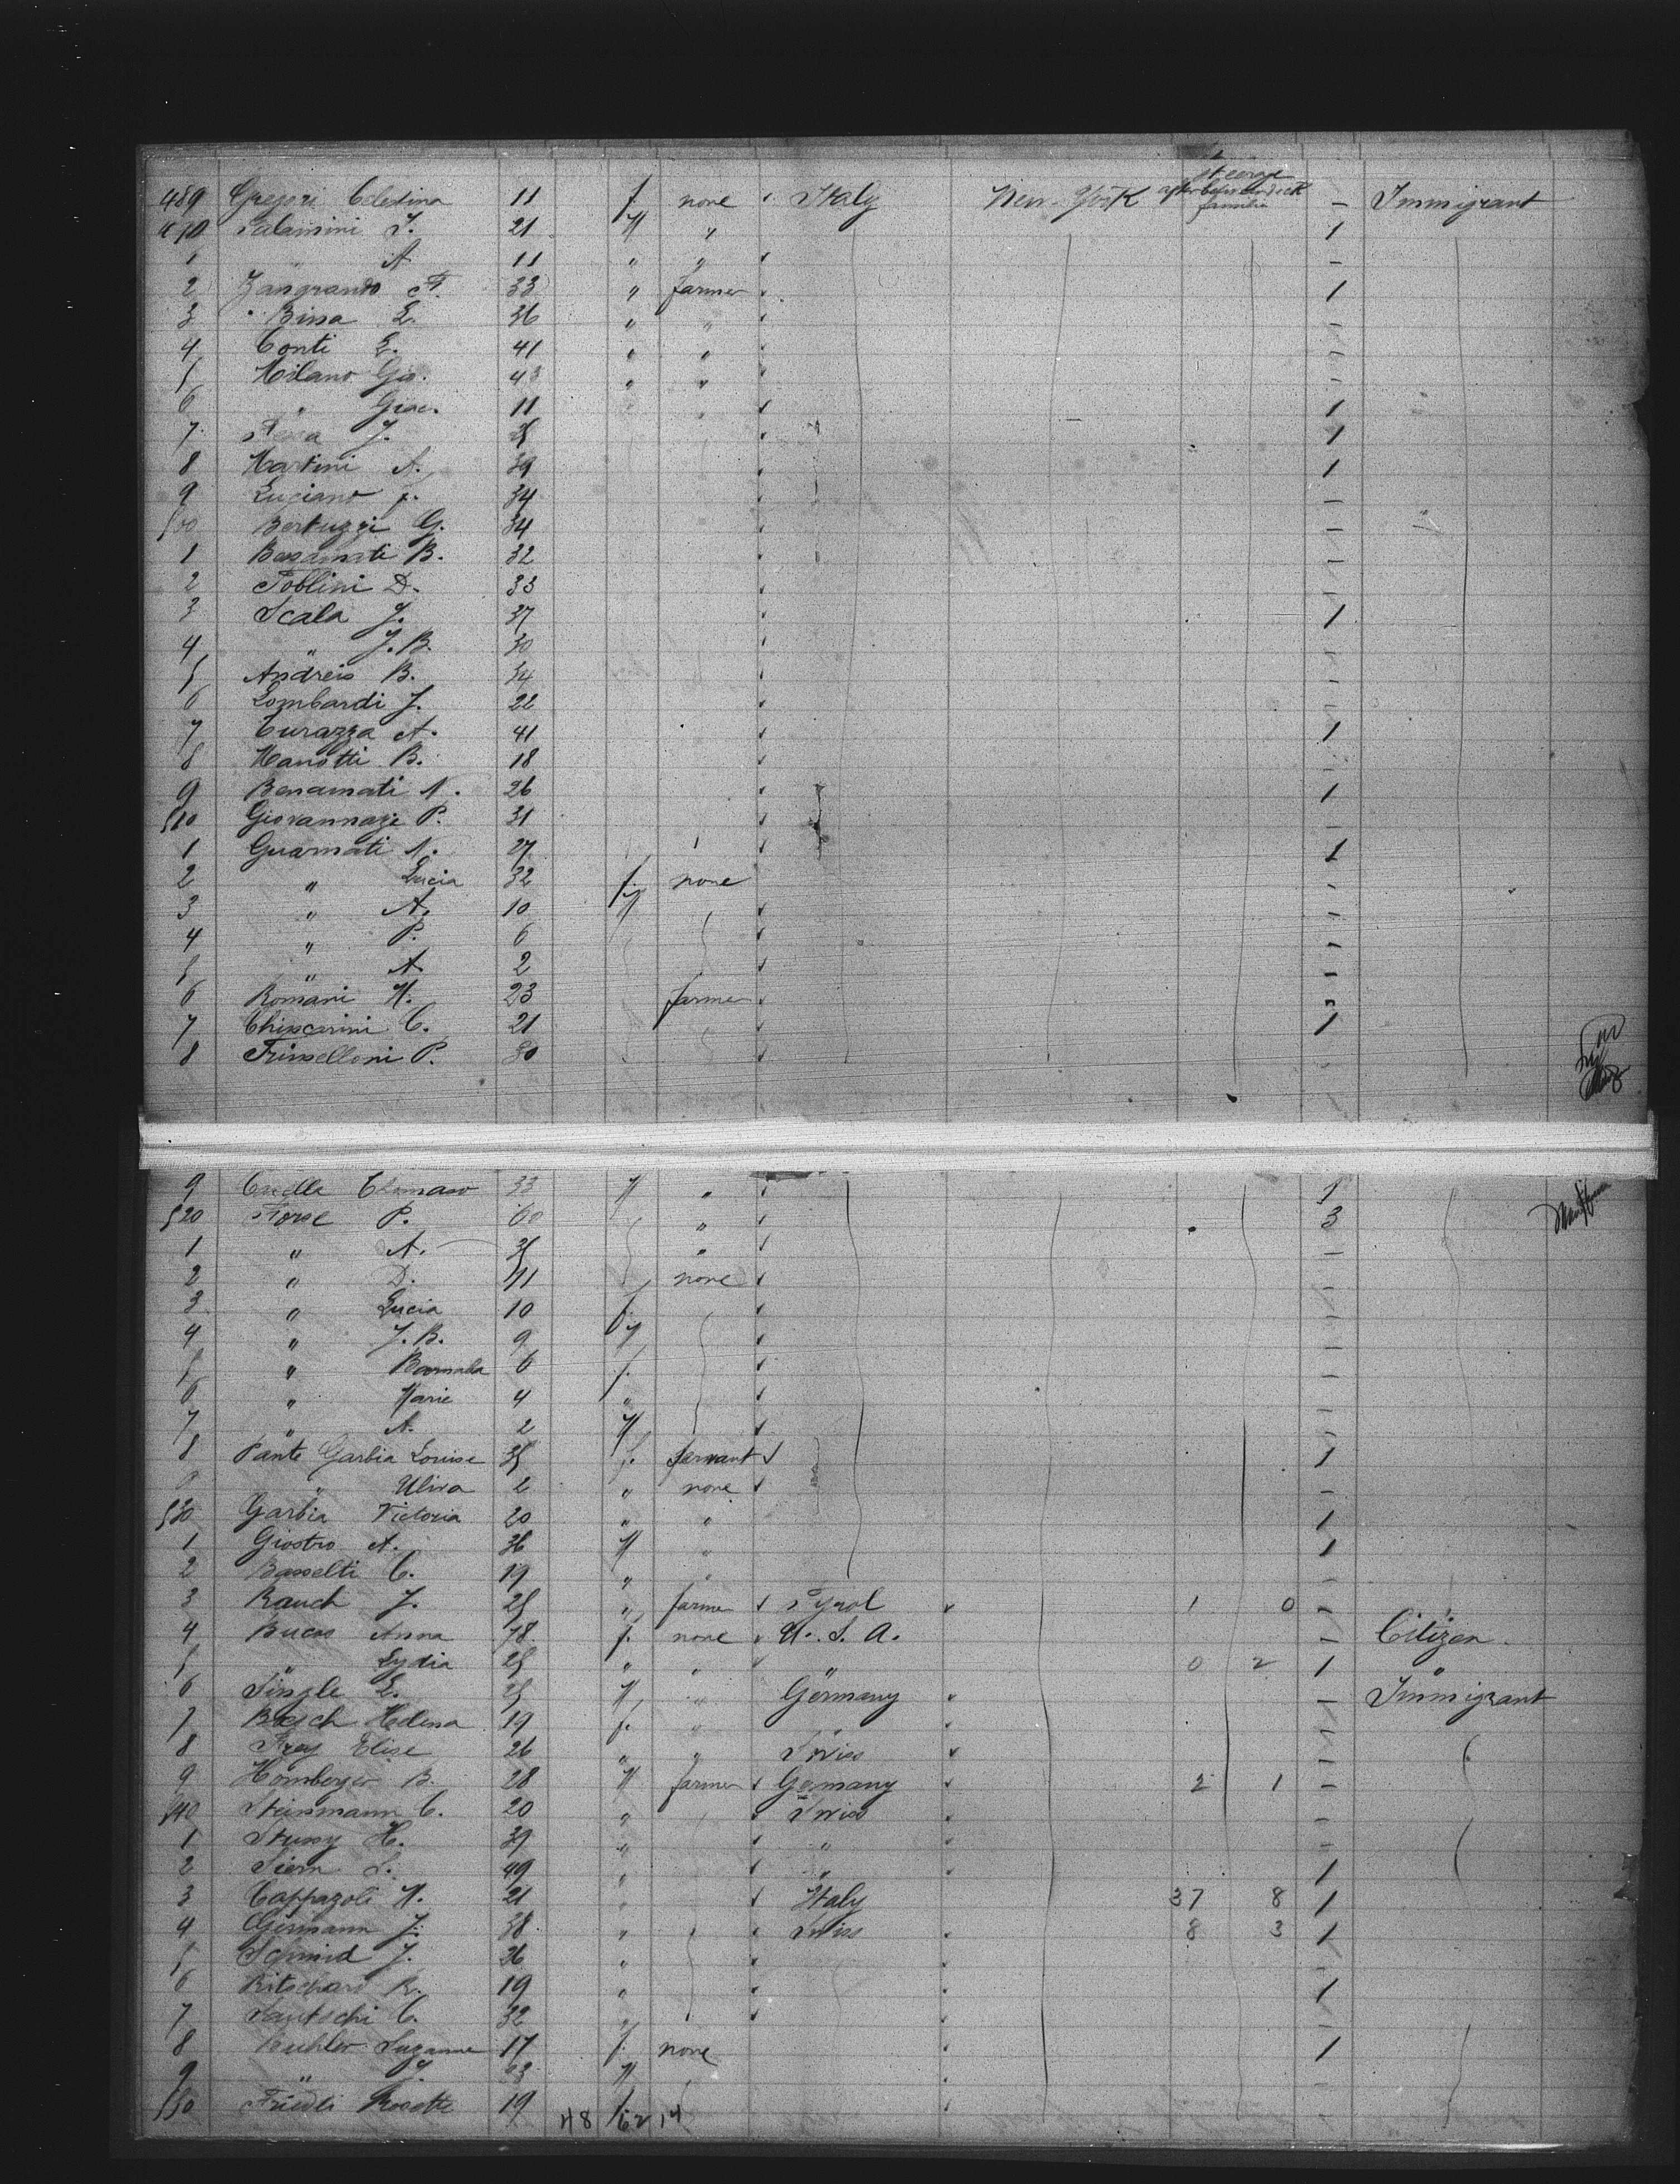 489 Gregori Celestina 11 f. none Italy New-York steerage after between deck familie – Immigrant
490 Salamini J. 21 M " 1
1 " A 11 " " –
2 Zangrando A. 33 " farmer 1
3 " Bissa E. 36 " " –
4 Conti E. 41 " " –
5 Milano Gio. 43 " " –
6 " Giac. 11 1
7 J. 35 1
8 Martini A. 39 1
9 Luciano f. 34 –
500 Bertuzzi G. 34 –
1 Benamati B. 32 –
2 Toblini D. 33 –
3 Scala J. 37 1
4 " J. B. 30 –
5 Andreis B. 34 –
6 Lombardi J. 22 –
7 Curazza A. 41 1
8 Manotti B. 18 –
9 Benamati A. 26 1
510 Giovannazi P. 31 –
1 Guarnati A. 27 1
2 " Lucia 32 f. none –
3 " A. 10 M –
4 " P. 6 –
5 " A 2 –
6 Romani M. 23 farmer
7 Chiscarini C. 21 1
8 Frinselloni P. 30
9 Thomaso 33 M " 1
520 P. 60 " 3
1 " A. 35 " –
2 " D. 11 none –
3 " Lucia 10 f. –
4 " J. B. 9 M –
5 " Barnaba 6 f. –
6 " Marie 4 " –
7 " A. 2 M –
8 Pante Garbia Louise 35 f. servant 1
9 " Uliva 2 " none –
530 Garbia Victoria 20 " " 1
1 Giostro A. 36 M " 1
2 Basselti C. 19 " " –
3 Rauch J. 25 " farmer Tyrol 1 0 –
4 Bucas Anna 78 f. none U. S. A. – Citizen
5 " Lydia 25 " " " 0 2 1 "
6 Single E. 25 M " Germany – Immigrant
7 Besch Helena 19 f. " " –
8 Frey Elise 26 " " Swiss –
9 Homberger B. 28 M farmer Germany 2 1 –
540 Steinmann C. 20 " Swiss –
1 Stussy H. 39 " " –
2 Siern S. 49 " " 1
3 Cappazoli M. 21 " Italy 37 8 1
4 Germann J. 38 " Swiss 8 3 1
5 Schmid J. 26 " –
6 Ritschard R. 19 " 1
7 Lautschi C. 32 " –
8 Buhler Suzanne 17 f. none 1
9 " J. 23 M –
550 Friedli Rosette 19 f. –
48 62 14